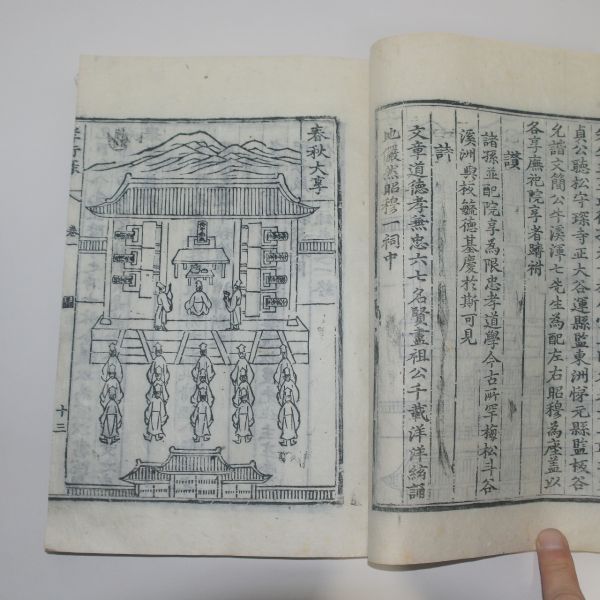 貞公聽松守琛寺正大谷運縣監東洲悌元縣監板谷
允諧文簡公牛溪渾七先生為配左右昭穆為座蓋以
各享廡祀院享者躋祔
讃
諸孫並配院享為限忠孝道學今古所罕梅松斗谷
溪洲與板毓德基慶於斯可見
詩
文章道德孝兼忠六七名賢盡祖公千載洋洋絃誦
地儼然昭穆一祠中
春秋大享
卷一
圖
十三